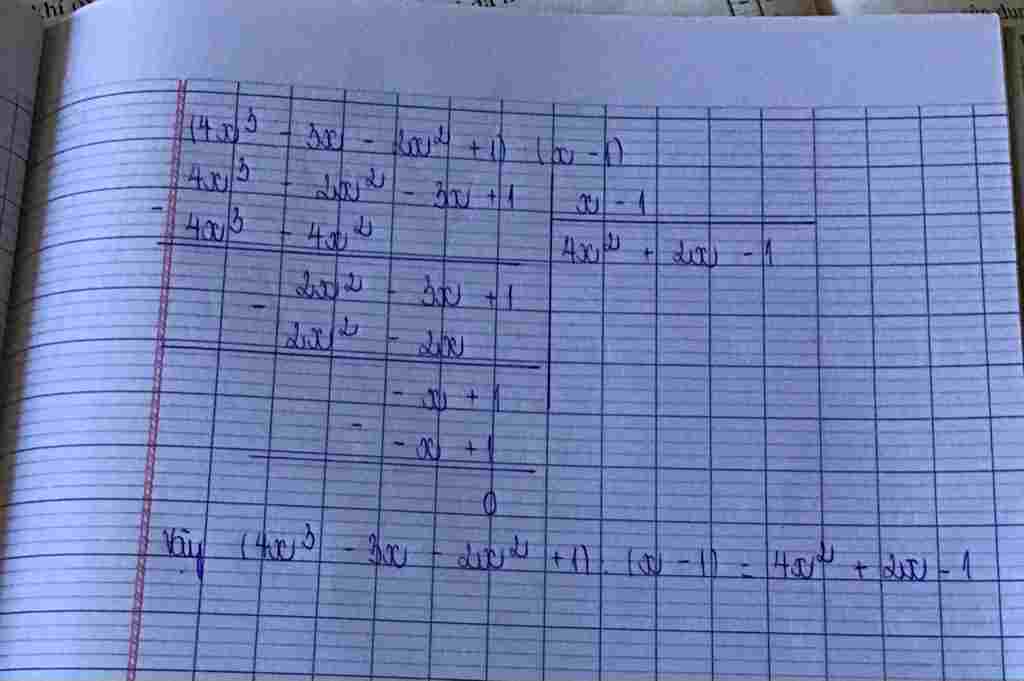 (4x³ - 3x - 2x² + 1) : (x - 1)
4x³ - 2x² - 3x + 1 | x - 1
- 4x³ - 4x² | 4x² + 2x - 1
2x² - 3x + 1
- 2x² - 2x
- x + 1
- - x + 1
0
Vậy (4x³ - 3x - 2x² + 1) : (x - 1) = 4x² + 2x - 1